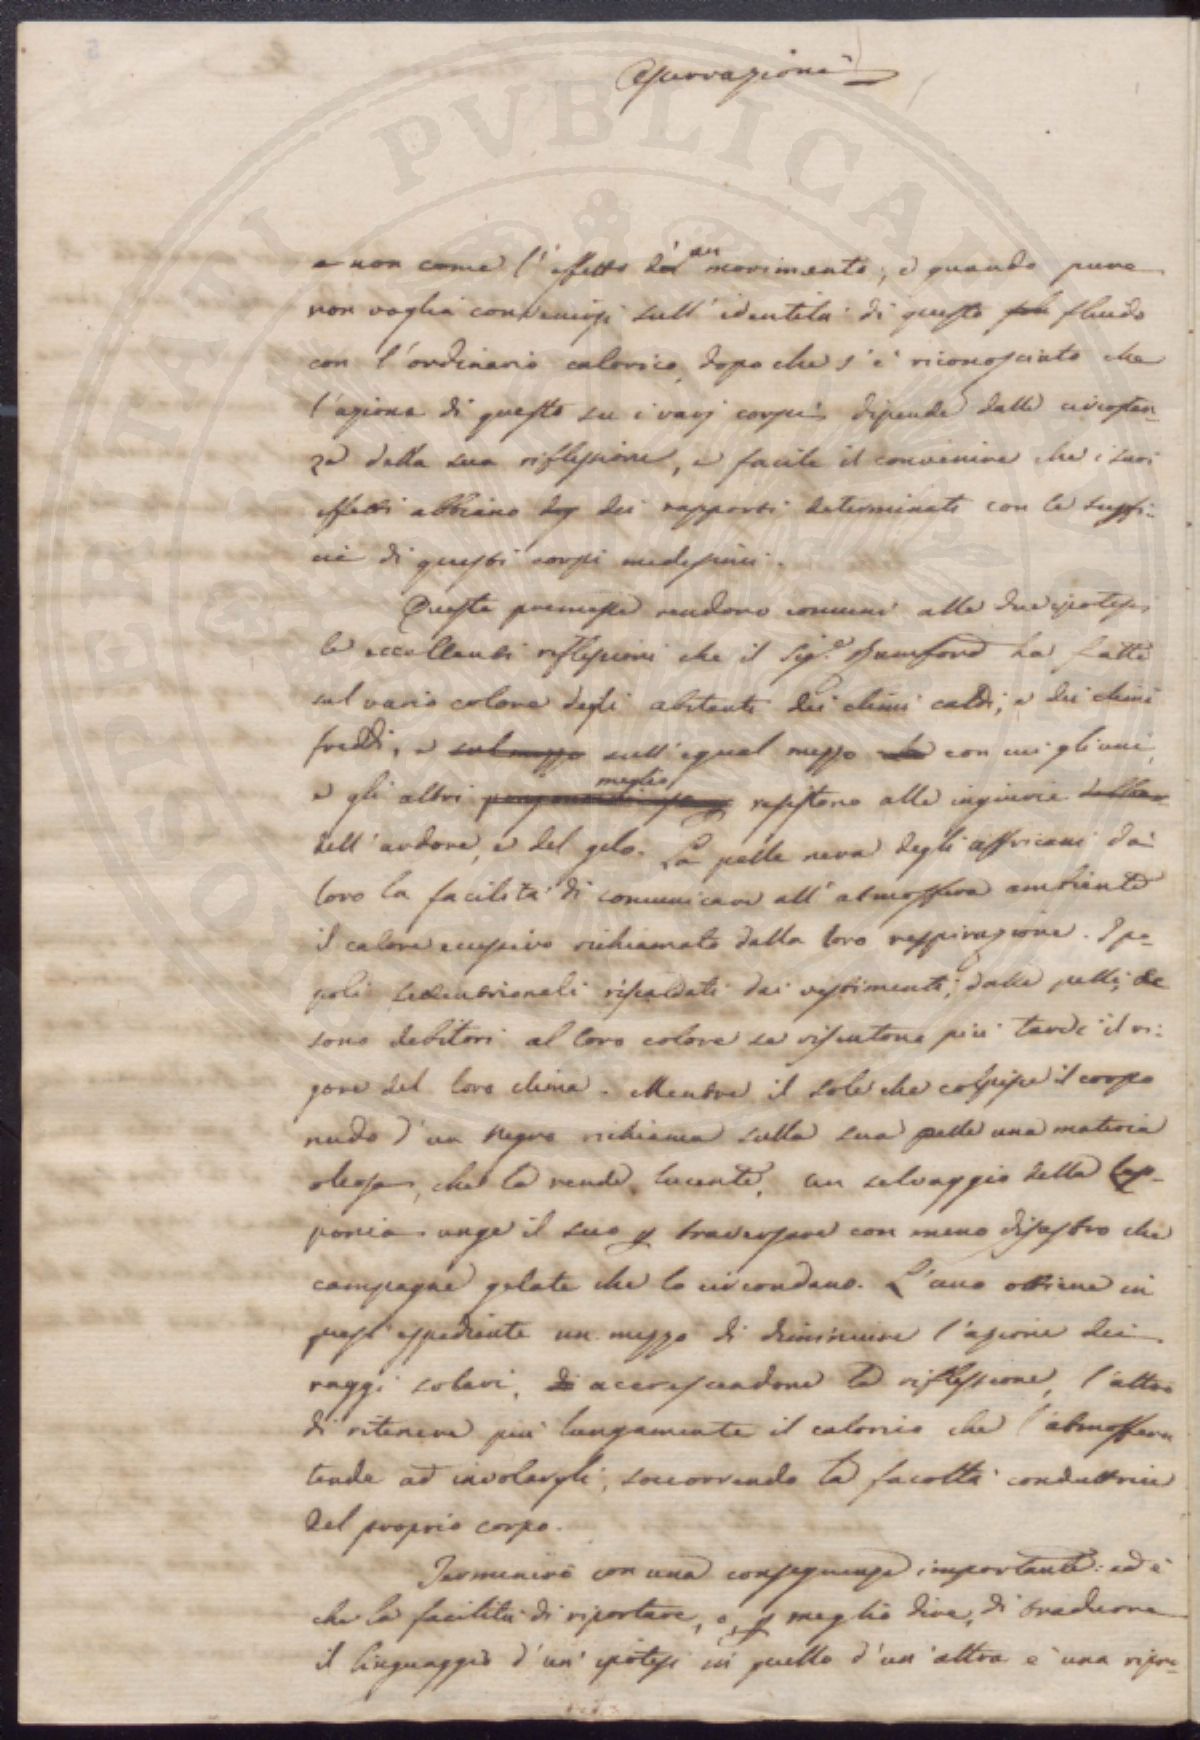 Osservazione
e non come l'effetto d'un movimento; e quando pure
non voglia convenirsi sull'identità di questo fluido
con l'ordinario calorico, dopo che s'è riconosciuto che
l'azione di questo su i varj corpi dipende dalle circostan-
ze della sua riflessione, è facile il convenire che i suoi
effetti abbiano dei rapporti determinati con le superfi-
cie di questi corpi medesimi.
Queste premesse rendono comuni alle due ipotesi
le eccellenti riflessioni che il Sig.r Rumford ha fatte
sul vario colore degli abitanti dei climi caldi, e dei climi
freddi, e sul mezzo sull'egual mezzo con cui gli uni,
e gli altri meglio resistono alle ingiurie
dell'ardore, e del gelo. La pelle nera degli affricani dà
loro la facilità di comunicare all'atmosfera ambiente
il calore eccessivo richiamato dalla loro respirazione. I po-
poli settentrionali riscaldati dai vestimenti, dalle pelli,
sono debitori al loro colore se risentono più tardi il ri-
gore del loro clima. Mentre il sole che colpisce il corpo
nudo d'un Negro richiama sulla sua pelle una materia
oleosa, che la rende lucente, un selvaggio della Lap-
ponia unge il suo p traversare con meno disastro che
campagne gelate che lo circondano. L'uno ottiene in
quest'espediente un mezzo di diminuire l'azione dei
raggi solari, di accrescendone la riflessione, l'altro
di ritenere più lungamente il calorico che l'atmosfera
tende ad involargli, soccorrendo la facoltà conduttrice
del proprio corpo.
Terminerò con una conseguenza importante: ed è
che la facilità di riportare, o, p meglio dire, di tradurre
il linguaggio d'un'ipotesi in quello d'un'altra è una ripro-